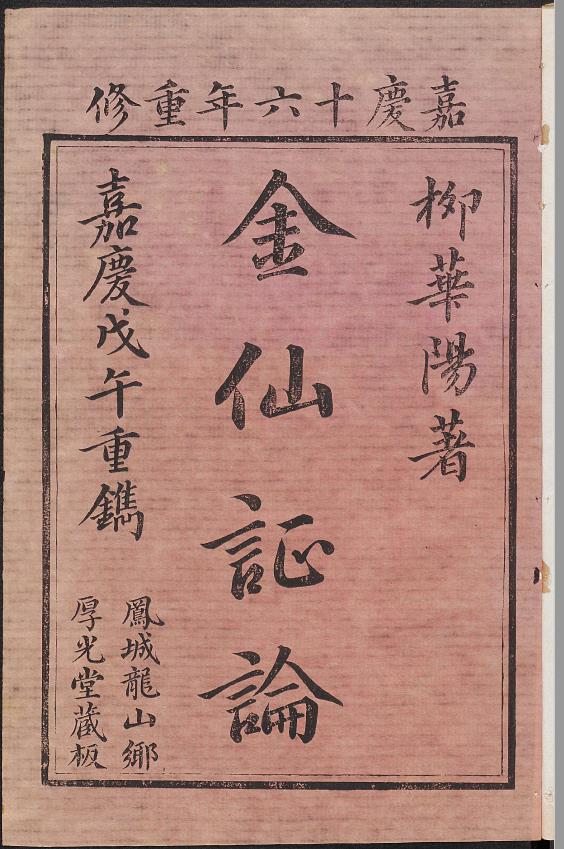 嘉慶十六年重修
柳華陽著
金仙証論
嘉慶戊午重鐫
鳳城龍山鄉
厚光堂蔵板